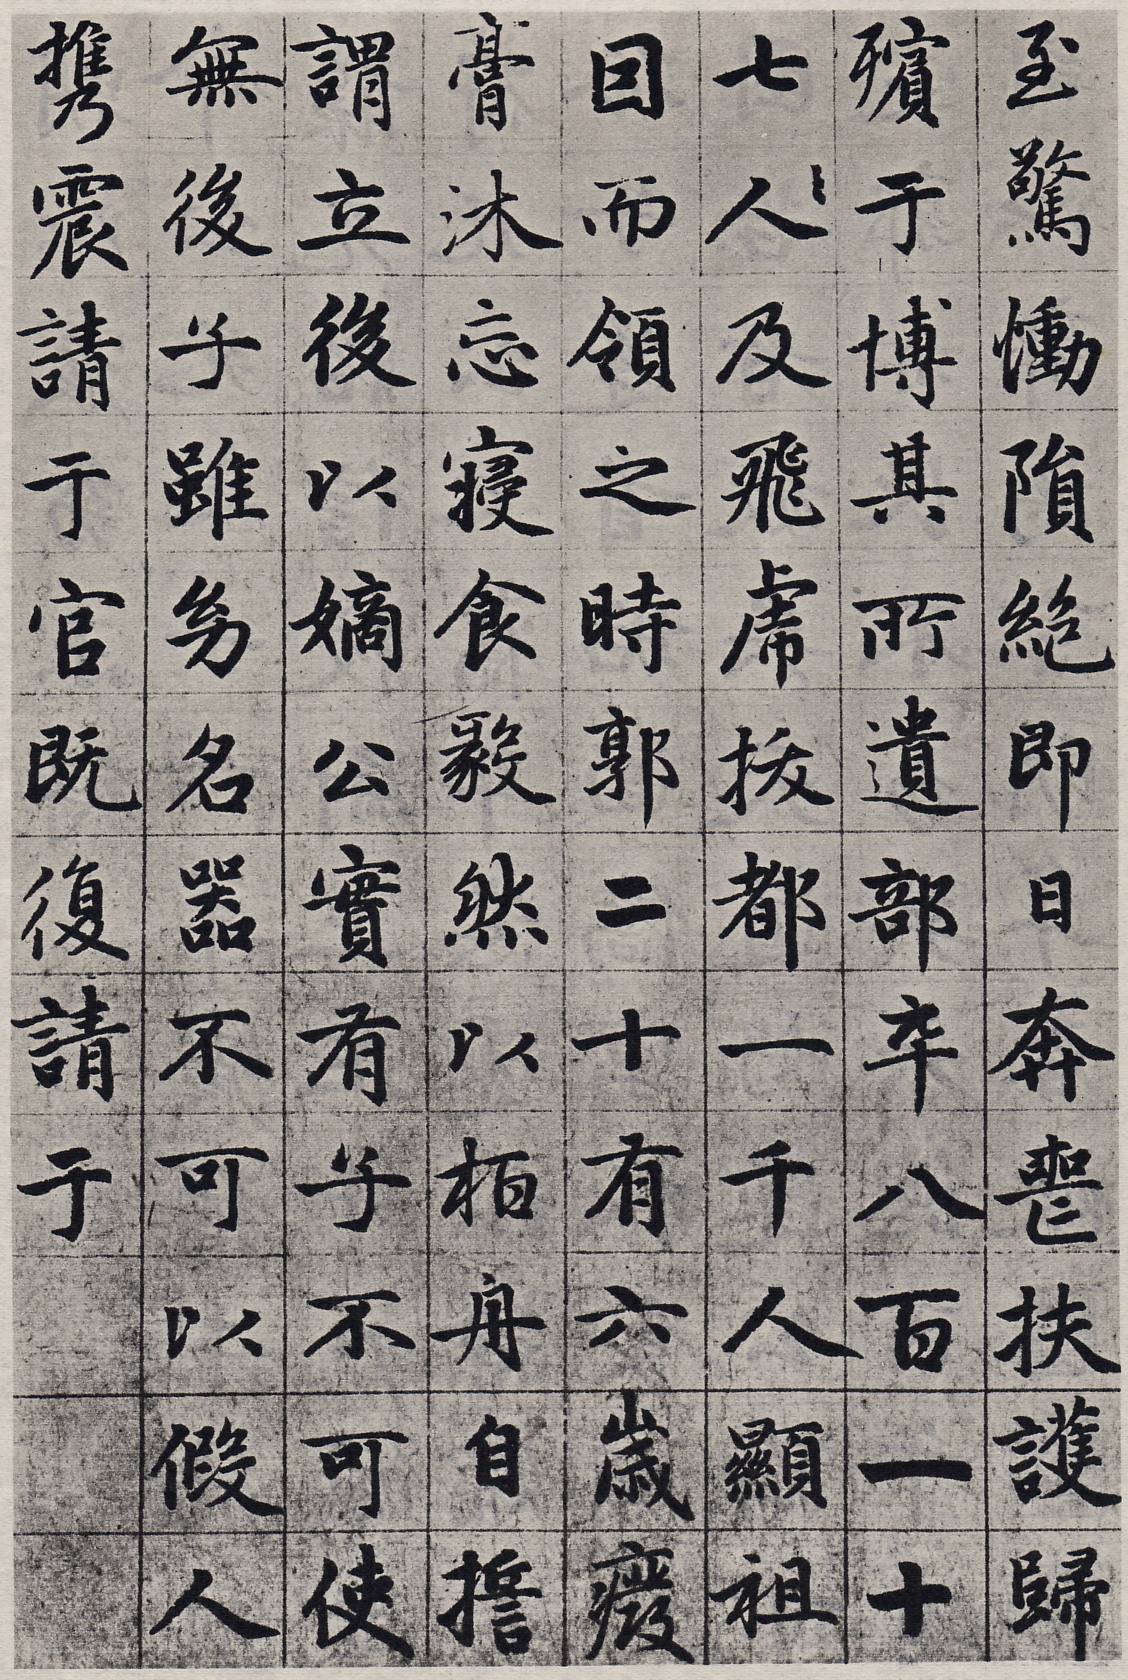 至驚慟隕絕即日奔喪扶護歸
殯于博其所遺部卒八百一十
七人〻及飛虎拔都一千人顯祖
因而領之時郭二十有六歲癈
膏沐忘寢食毅然以柏舟自誓
謂立後以嫡公實有子不可使
無後子雖幼名器不可以假人
攜乃震請于官既復請于